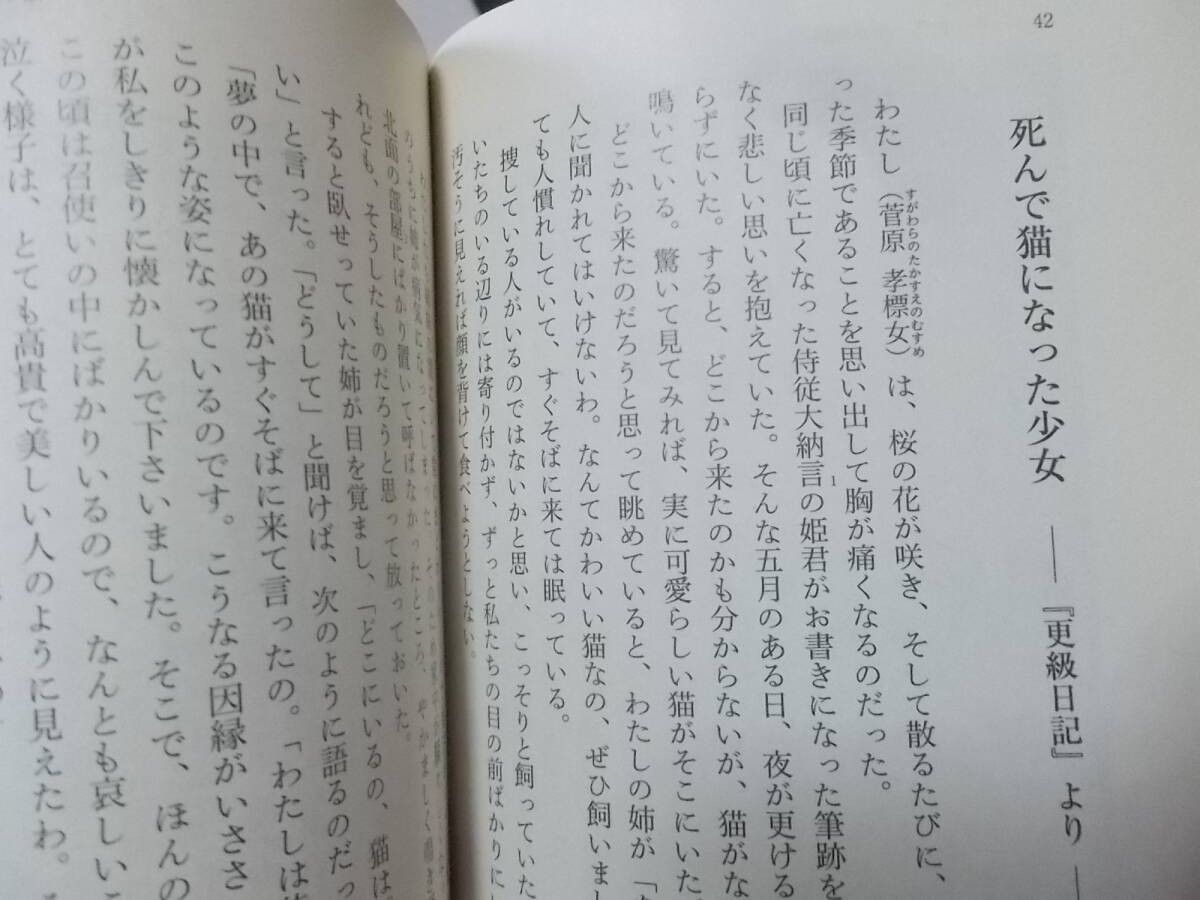 42
死んで猫になった少女 ―― 『更級日記』より ―
わたし（菅原孝標女）は、桜の花が咲き、そして散るたびに、
すがわらのたかすえのむすめ
った季節であることを思い出して胸が痛くなるのだった。
同じ頃に亡くなった侍従大納言の姫君がお書きになった筆跡を
1
なく悲しい思いを抱えていた。そんな五月のある日、夜が更ける
らずにいた。すると、どこから来たのかも分からないが、猫がな
鳴いている。驚いて見てみれば、実に可愛らしい猫がそこにいた
どこから来たのだろうと思って眺めていると、わたしの姉が「
人に聞かれてはいけないわ。なんてかわいい猫なの、ぜひ飼いまし
ても人慣れしていて、すぐそばに来ては眠っている。
捜している人がいるのではないかと思い、こっそりと飼っていた
いたちのいる辺りには寄り付かず、ずっと私たちの目の前ばかりに
汚そうに見えれば顔を背けて食べようとしない。
北面の部屋にばかり置いて呼ばなかったところ、やかましく
れども、そうしたものだろうと思って放っておいた。
すると臥せっていた姉が目を覚まし、「どこにいるの、猫は
い」と言った。「どうして」と聞けば、次のように語るのだっ
「夢の中で、あの猫がすぐそばに来て言ったの。「わたしは
このような姿になっているのです。こうなる因縁がいささ
が私をしきりに懐かしんで下さいました。そこで、ほんの
この頃は召使いの中にばかりいるので、なんとも哀しいこ
泣く様子は、とても高貴で美しい人のように見えたわ。